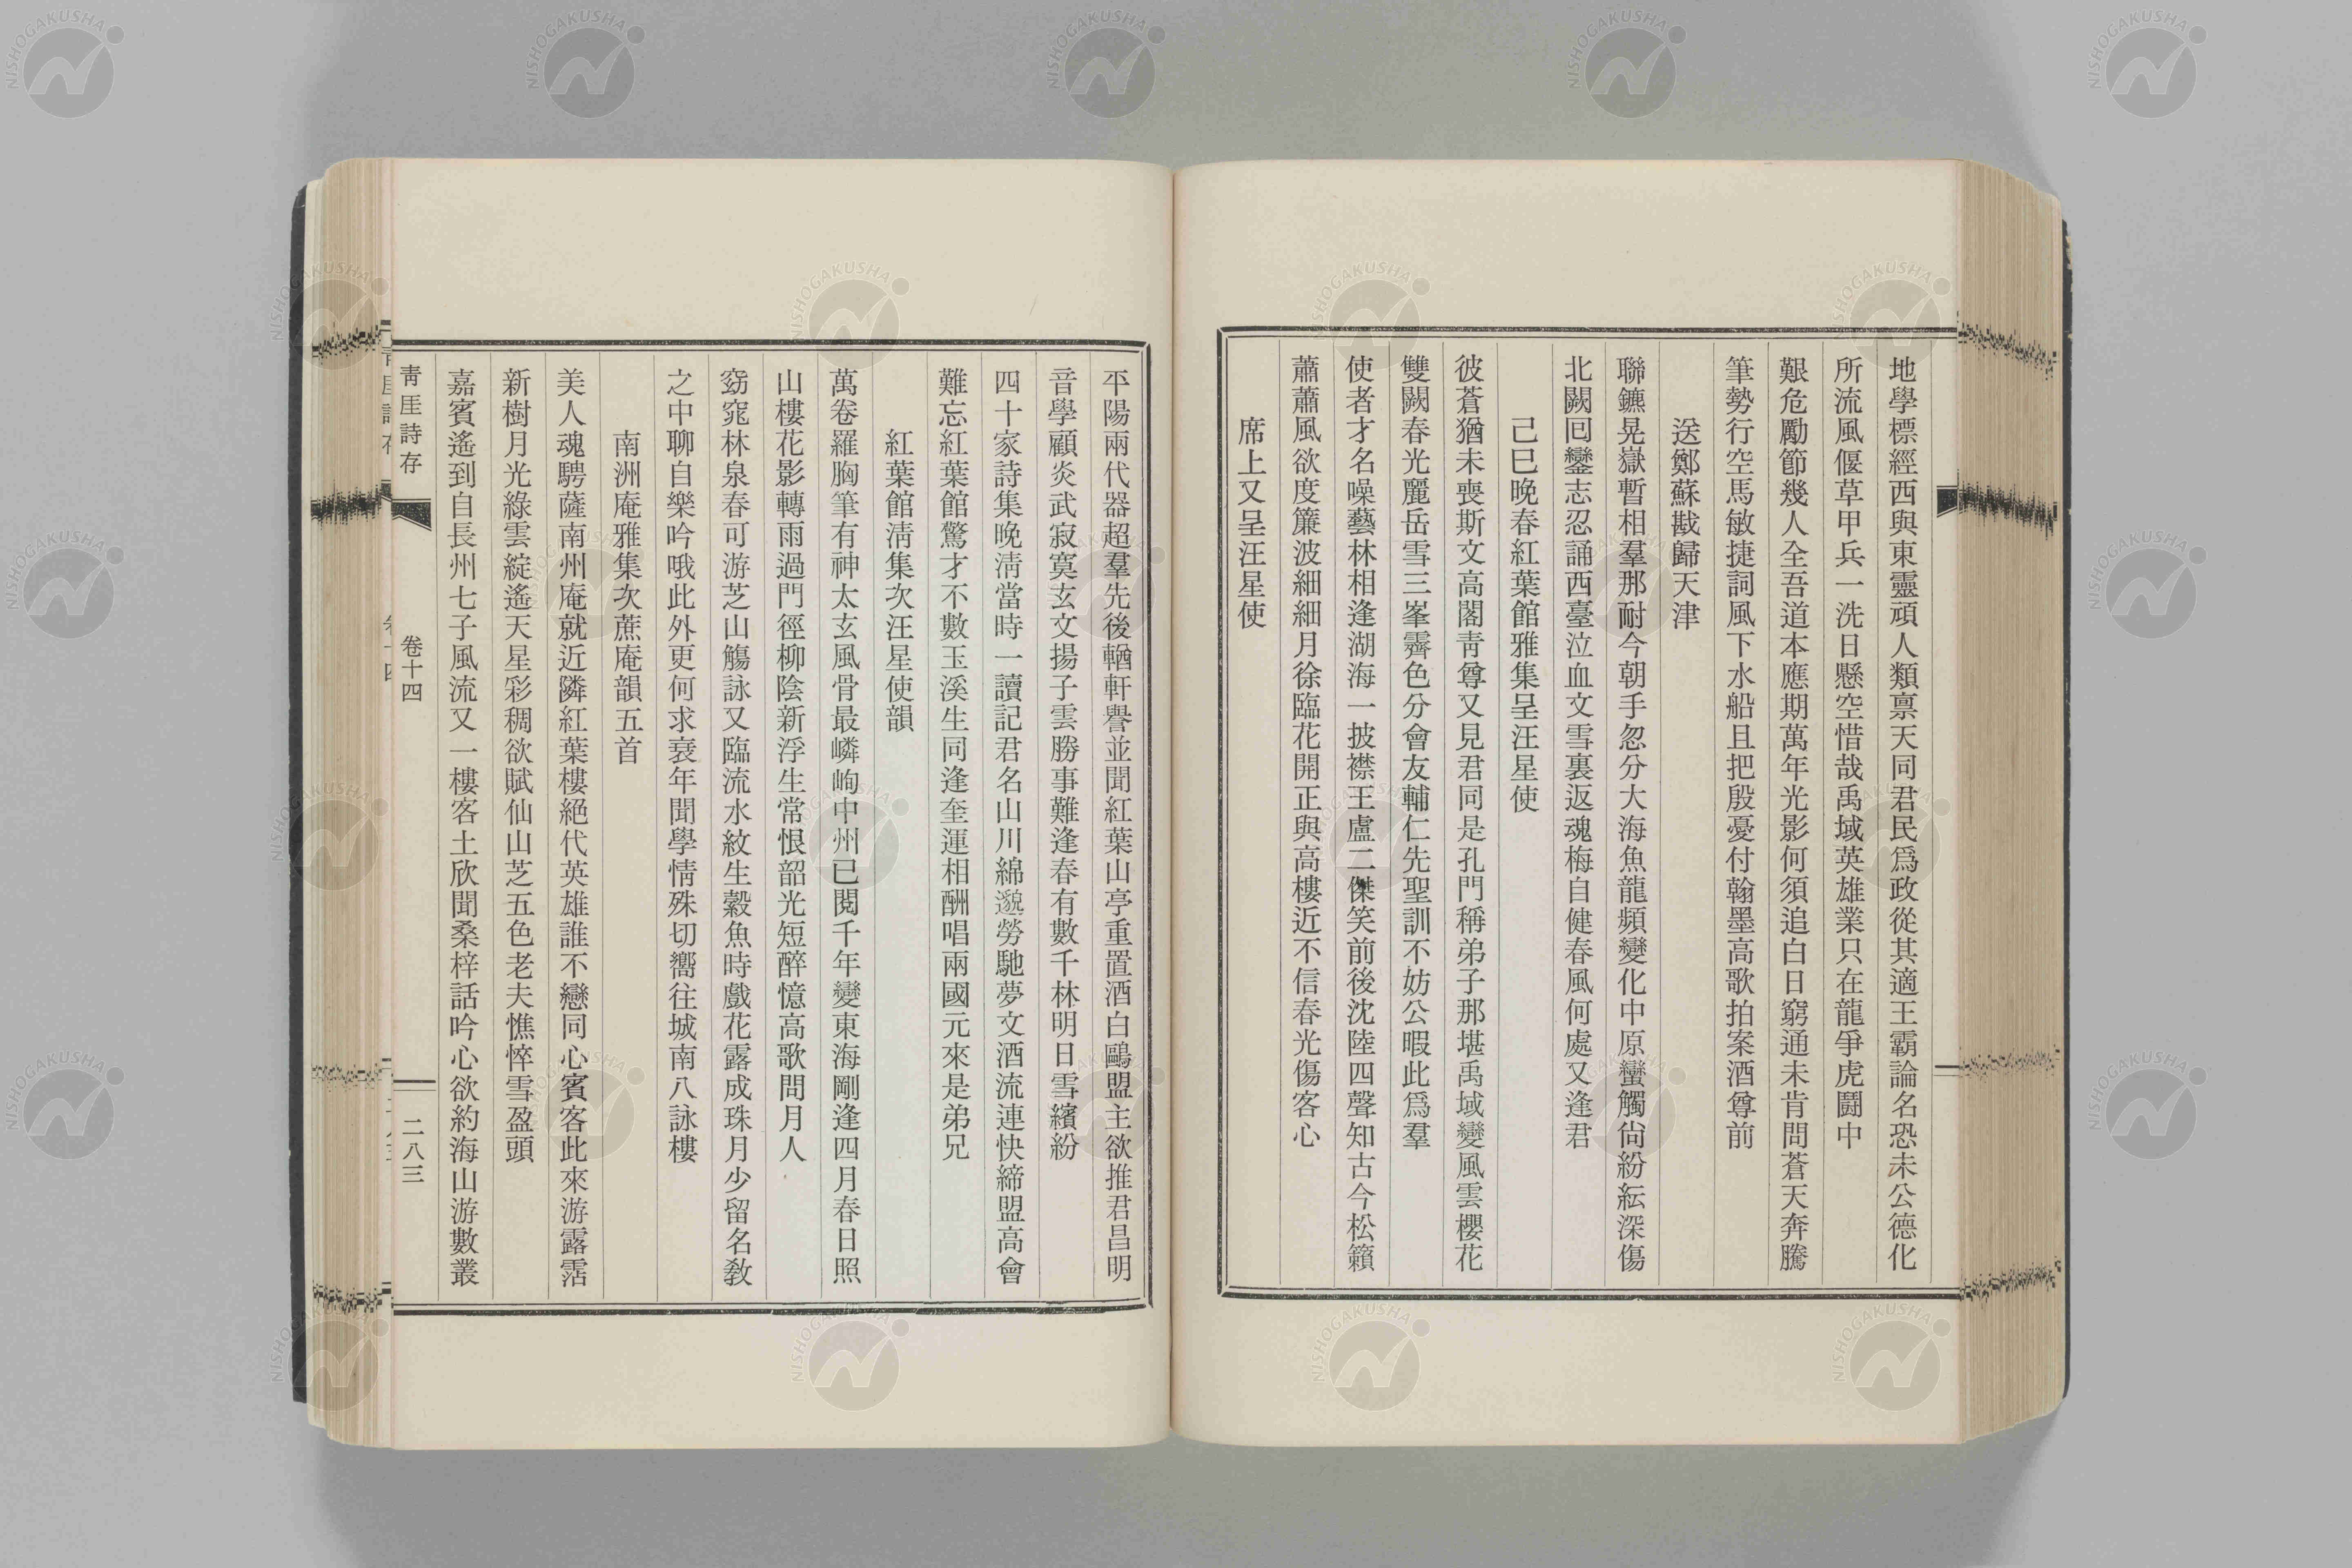 地學標經西與東靈頑人類禀天同君民爲政從其適王霸論名恐未公德化
所流風偃草甲兵一洗日懸空惜哉禹域英雄業只在龍爭虎鬪中
艱危勵節幾人全吾道本應期萬年光影何須追白日窮通未肯問蒼天奔騰
筆勢行空馬敏捷詞風下水船且把殷憂付翰墨高歌拍案酒尊前
送鄭蘇戡歸天津
聯鑣晃嶽暫相羣那耐今朝手忽分大海魚龍頻變化中原蠻觸尙紛紜深傷
北闕回鑾志忍誦西臺泣血文雪裏返魂梅自健春風何處又逢君
己巳晚春紅葉館雅集呈汪星使
彼蒼猶未喪斯文高閣靑尊又見君同是孔門稱弟子那堪禹域變風雲櫻花
雙闕春光麗岳雪三峯霽色分會友輔仁先聖訓不妨公暇此爲羣
使者才名噪藝林相逢湖海一披襟王盧二傑笑前後沈陸四聲知古今松籟
蕭蕭風欲度簾波細細月徐臨花開正與高樓近不信春光傷客心
席上又呈汪星使
平陽兩代器超羣先後輶軒譽並聞紅葉山亭重置酒白鷗盟主欲推君昌明
音學顧炎武寂寞玄文揚子雲勝事難逢春有數千林明日雪繽紛
四十家詩集晚淸當時一讀記君名山川綿邈勞馳夢文酒流連快締盟高會
難忘紅葉館驚才不數玉溪生同逢奎運相酬唱兩國元來是弟兄
紅葉館淸集次汪星使韻
萬卷羅胸筆有神太玄風骨最嶙峋中州已閱千年變東海剛逢四月春日照
山樓花影轉雨過門徑柳陰新浮生常恨韶光短醉憶高歌問月人
窈窕林泉春可游芝山觴詠又臨流水紋生縠魚時戲花露成珠月少留名敎
之中聊自樂吟哦此外更何求衰年聞學情殊切嚮往城南八詠樓
南洲庵雅集次蔗庵韻五首
美人魂騁薩南州庵就近隣紅葉樓絕代英雄誰不戀同心賓客此來游露霑
新樹月光綠雲綻遙天星彩稠欲賦仙山芝五色老夫憔悴雪盈頭
嘉賓遙到自長州七子風流又一樓客土欣聞桑梓話吟心欲約海山游數叢
靑厓詩存
卷十四
二八三
NISHOGAKUSHA